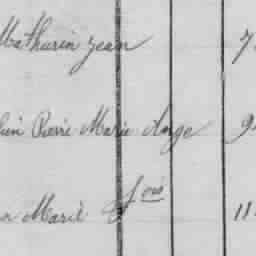 Mathurin Jean 7
Pierre Marie Ange 9
Marie fois 11